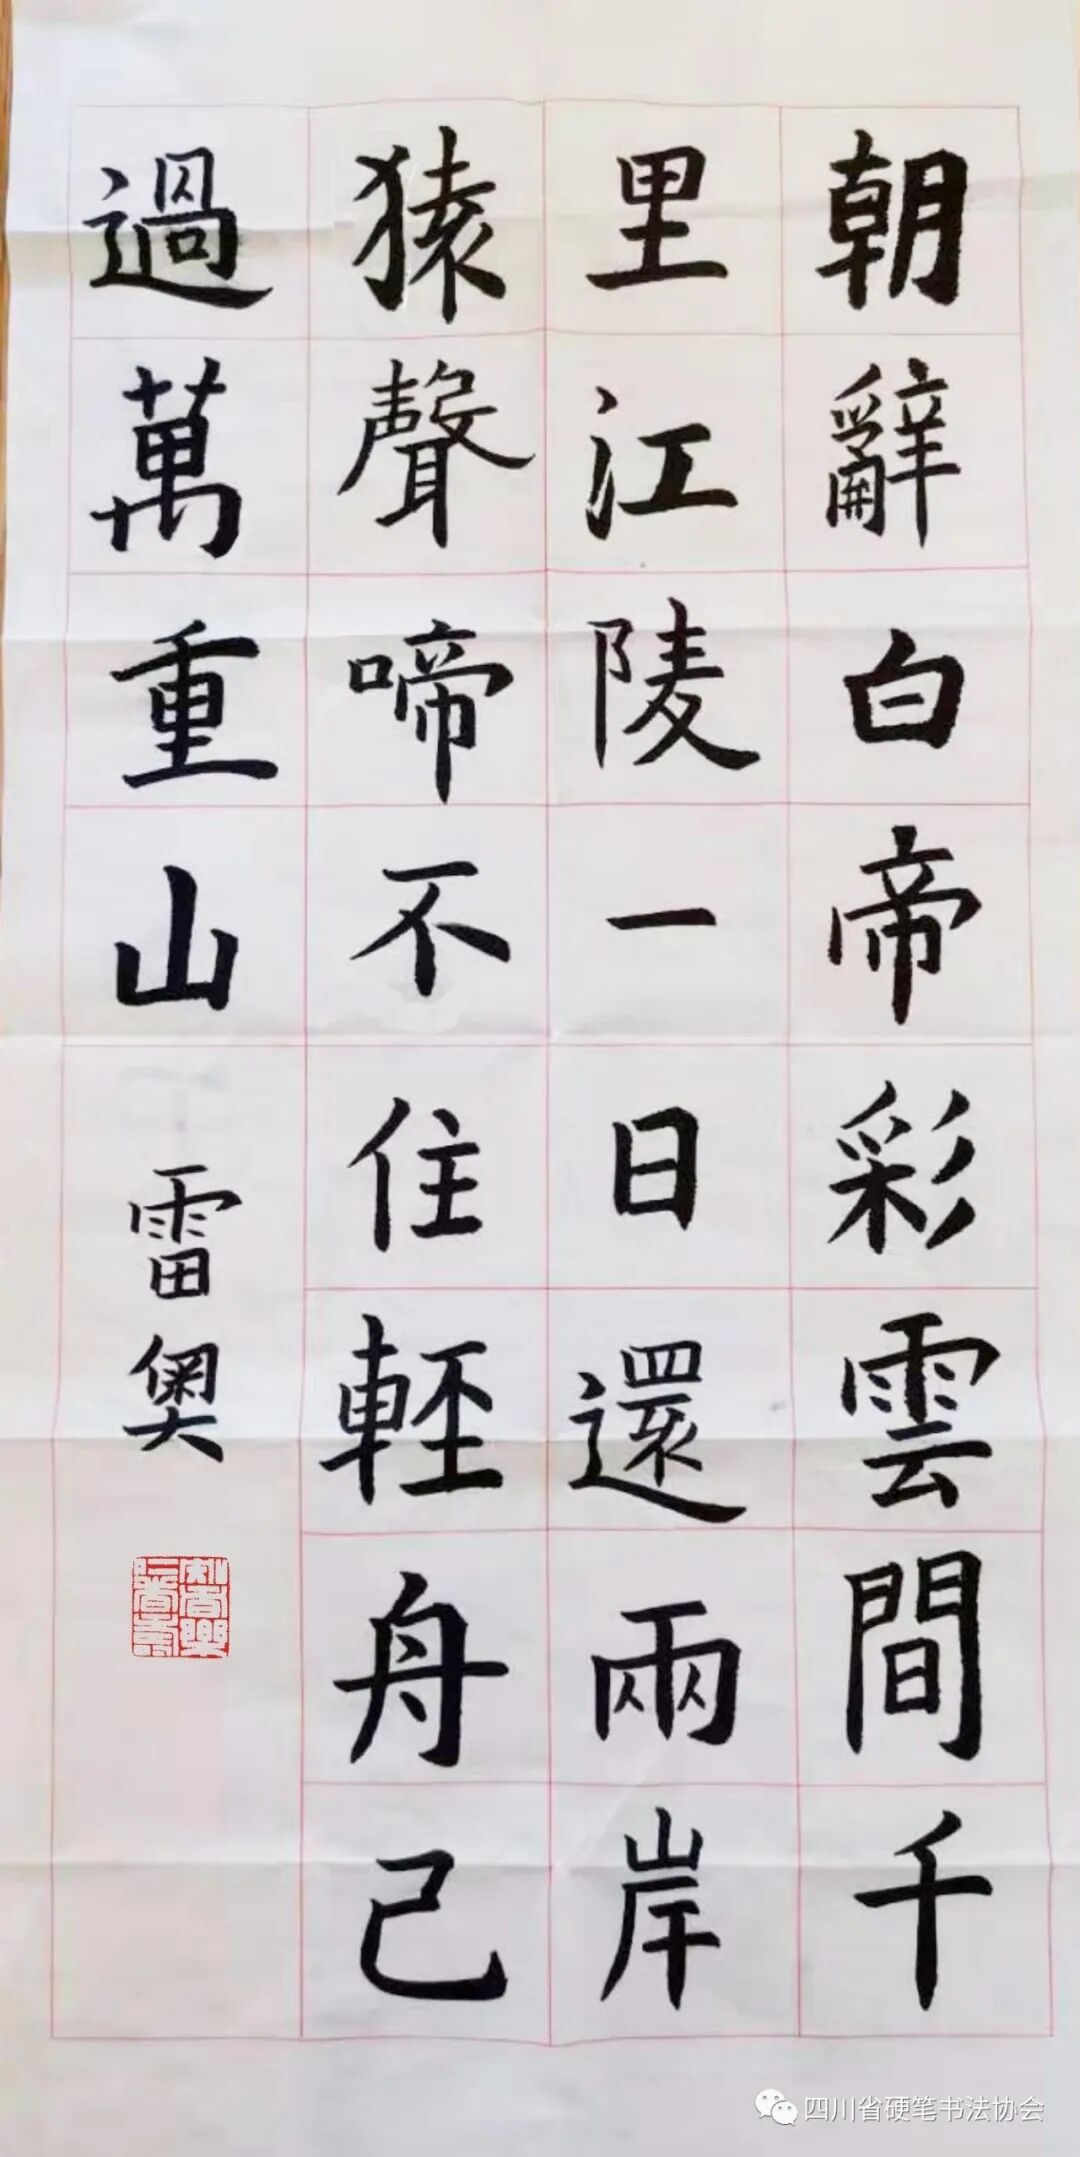 朝辭白帝彩雲間千
里江陵一日還兩岸
猿聲啼不住輕舟已
過萬重山
雷奥
四川省硬笔书法协会